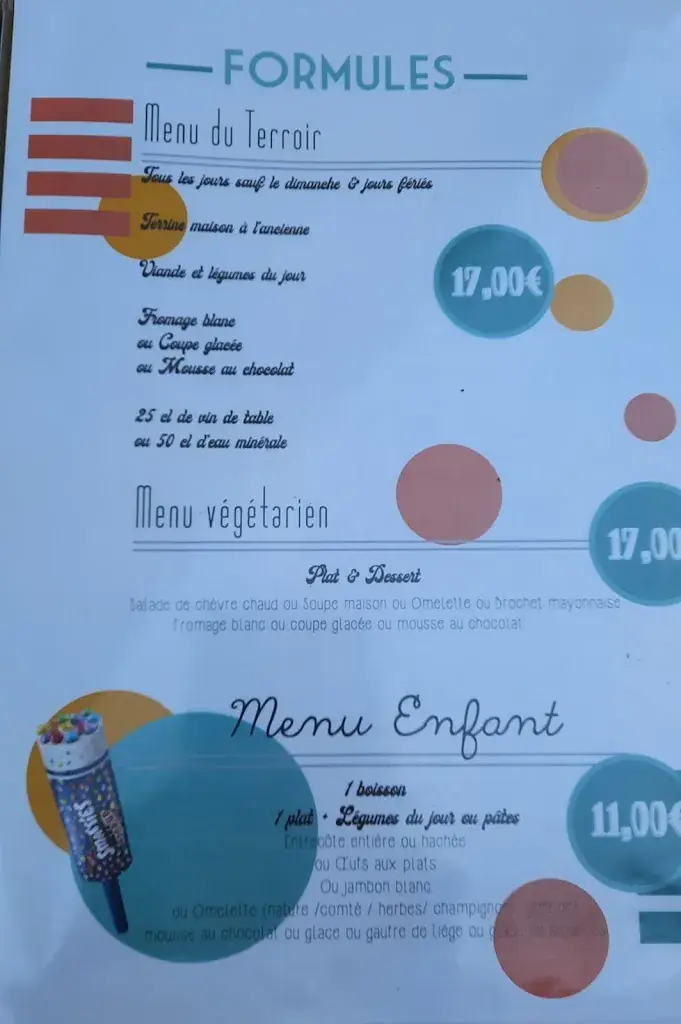 FORMULES
Menu du Terroir
Tous les jours sauf le dimanche & jours fériés
Terrine maison à l'ancienne
Viande et légumes du jour
17,00€
Fromage blanc
ou Coupe glacée
ou Mousse au chocolat
25 cl de vin de table
ou 50 cl d'eau minérale
Menu végétarien
17,00
Plat & Dessert
Salade de chèvre chaud ou Soupe maison ou Omelette ou Brochet mayonnaise
Fromage blanc ou coupe glacée ou mousse au chocolat
Menu Enfant
1 boisson
1 plat + Légumes du jour ou pâtes
11,00€
Entrecôte entière ou hachée
ou Œufs aux plats
Ou jambon blanc
ou Omelette (nature /comté / herbes/
mousse au chocolat ou glace ou gaufre de liège ou
SMARTIES